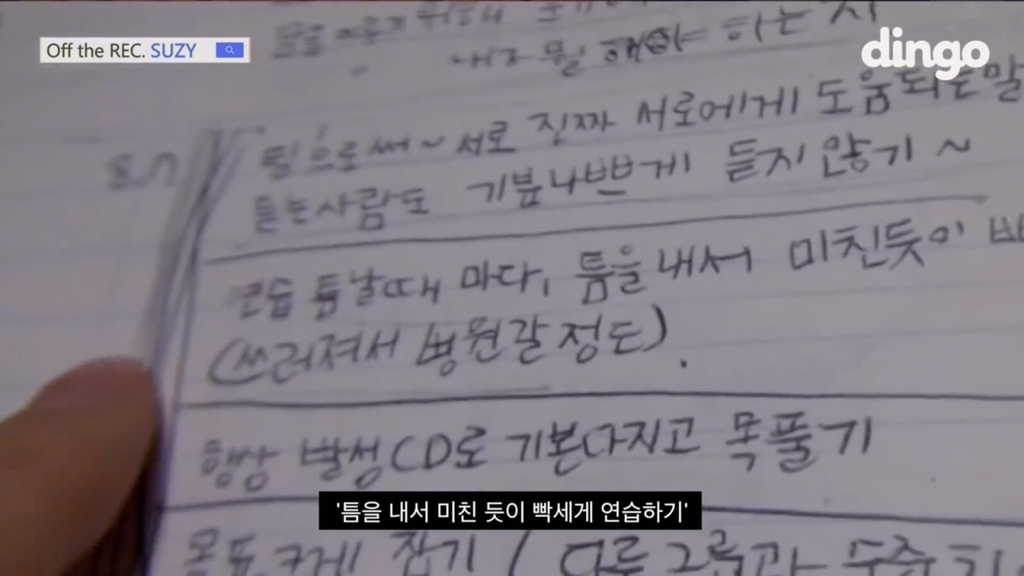 Off the REC. SUZY
dingo
뭘 해야 하는지
팀으로써~ 서로 진짜 서로에게 도움되는말
듣는사람도 기분나쁘게 듣지 않기 ~
연습 틈날때 마다, 틈을 내서 미친듯이
(쓰러져서 병원갈 정도).
항상 발성CD로 기본다지고 목풀기
'틈을 내서 미친 듯이 빡세게 연습하기'
목표 크게 잡기 / 다른그룹과